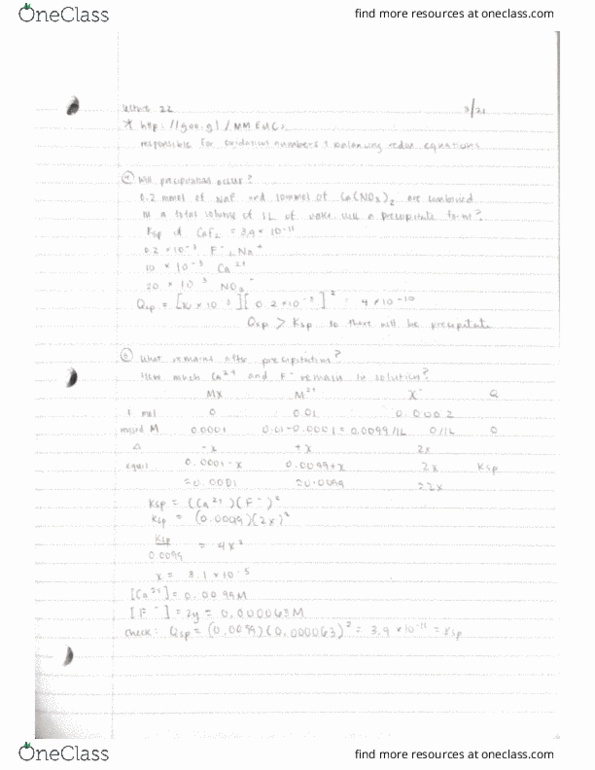 OneClass
find more resources at oneclass.com
Lecture 22 3/21
* http://goo.gl/MM
responsible for oxidation numbers & balancing redox equations
④ Will precipitation occur?
0.2 mmol of NaF and 10 mmol of Ca(NO3)2 are combined
in a total volume of 1L of water. will a precipitate form?
Ksp of CaF2 = 3.9 × 10⁻¹¹
0.2 × 10⁻³ F⁻, Na⁺
10 × 10⁻³ Ca²⁺
20 × 10⁻³ NO3⁻
Qsp = [10 × 10⁻³][0.2 × 10⁻³]² = 4 × 10⁻¹⁰
Qsp > Ksp so there will be precipitate
⑤ What remains after precipitation?
How much Ca²⁺ and F⁻ remain in solution?
MX M²⁺ X⁻ Q
mol 0 0.01 0.0002
M 0.0001 0.01-0.0001 = 0.0099/1L 0/1L 0
Δ -x +x 2x
equil 0.0001-x 0.0099+x 2x Ksp
≈0.0001 ≈0.0099 ≈2x
Ksp = (Ca²⁺)(F⁻)²
Ksp = (0.0099)(2x)²
Ksp
0.0099 = 4x²
x = 3.1 × 10⁻⁵
[Ca²⁺] = 0.0099M
[F⁻] = 2y = 0.000063M
check: Qsp = (0.0099)(0.000063)² = 3.9 × 10⁻¹¹ = Ksp
OneClass
find more resources at oneclass.com